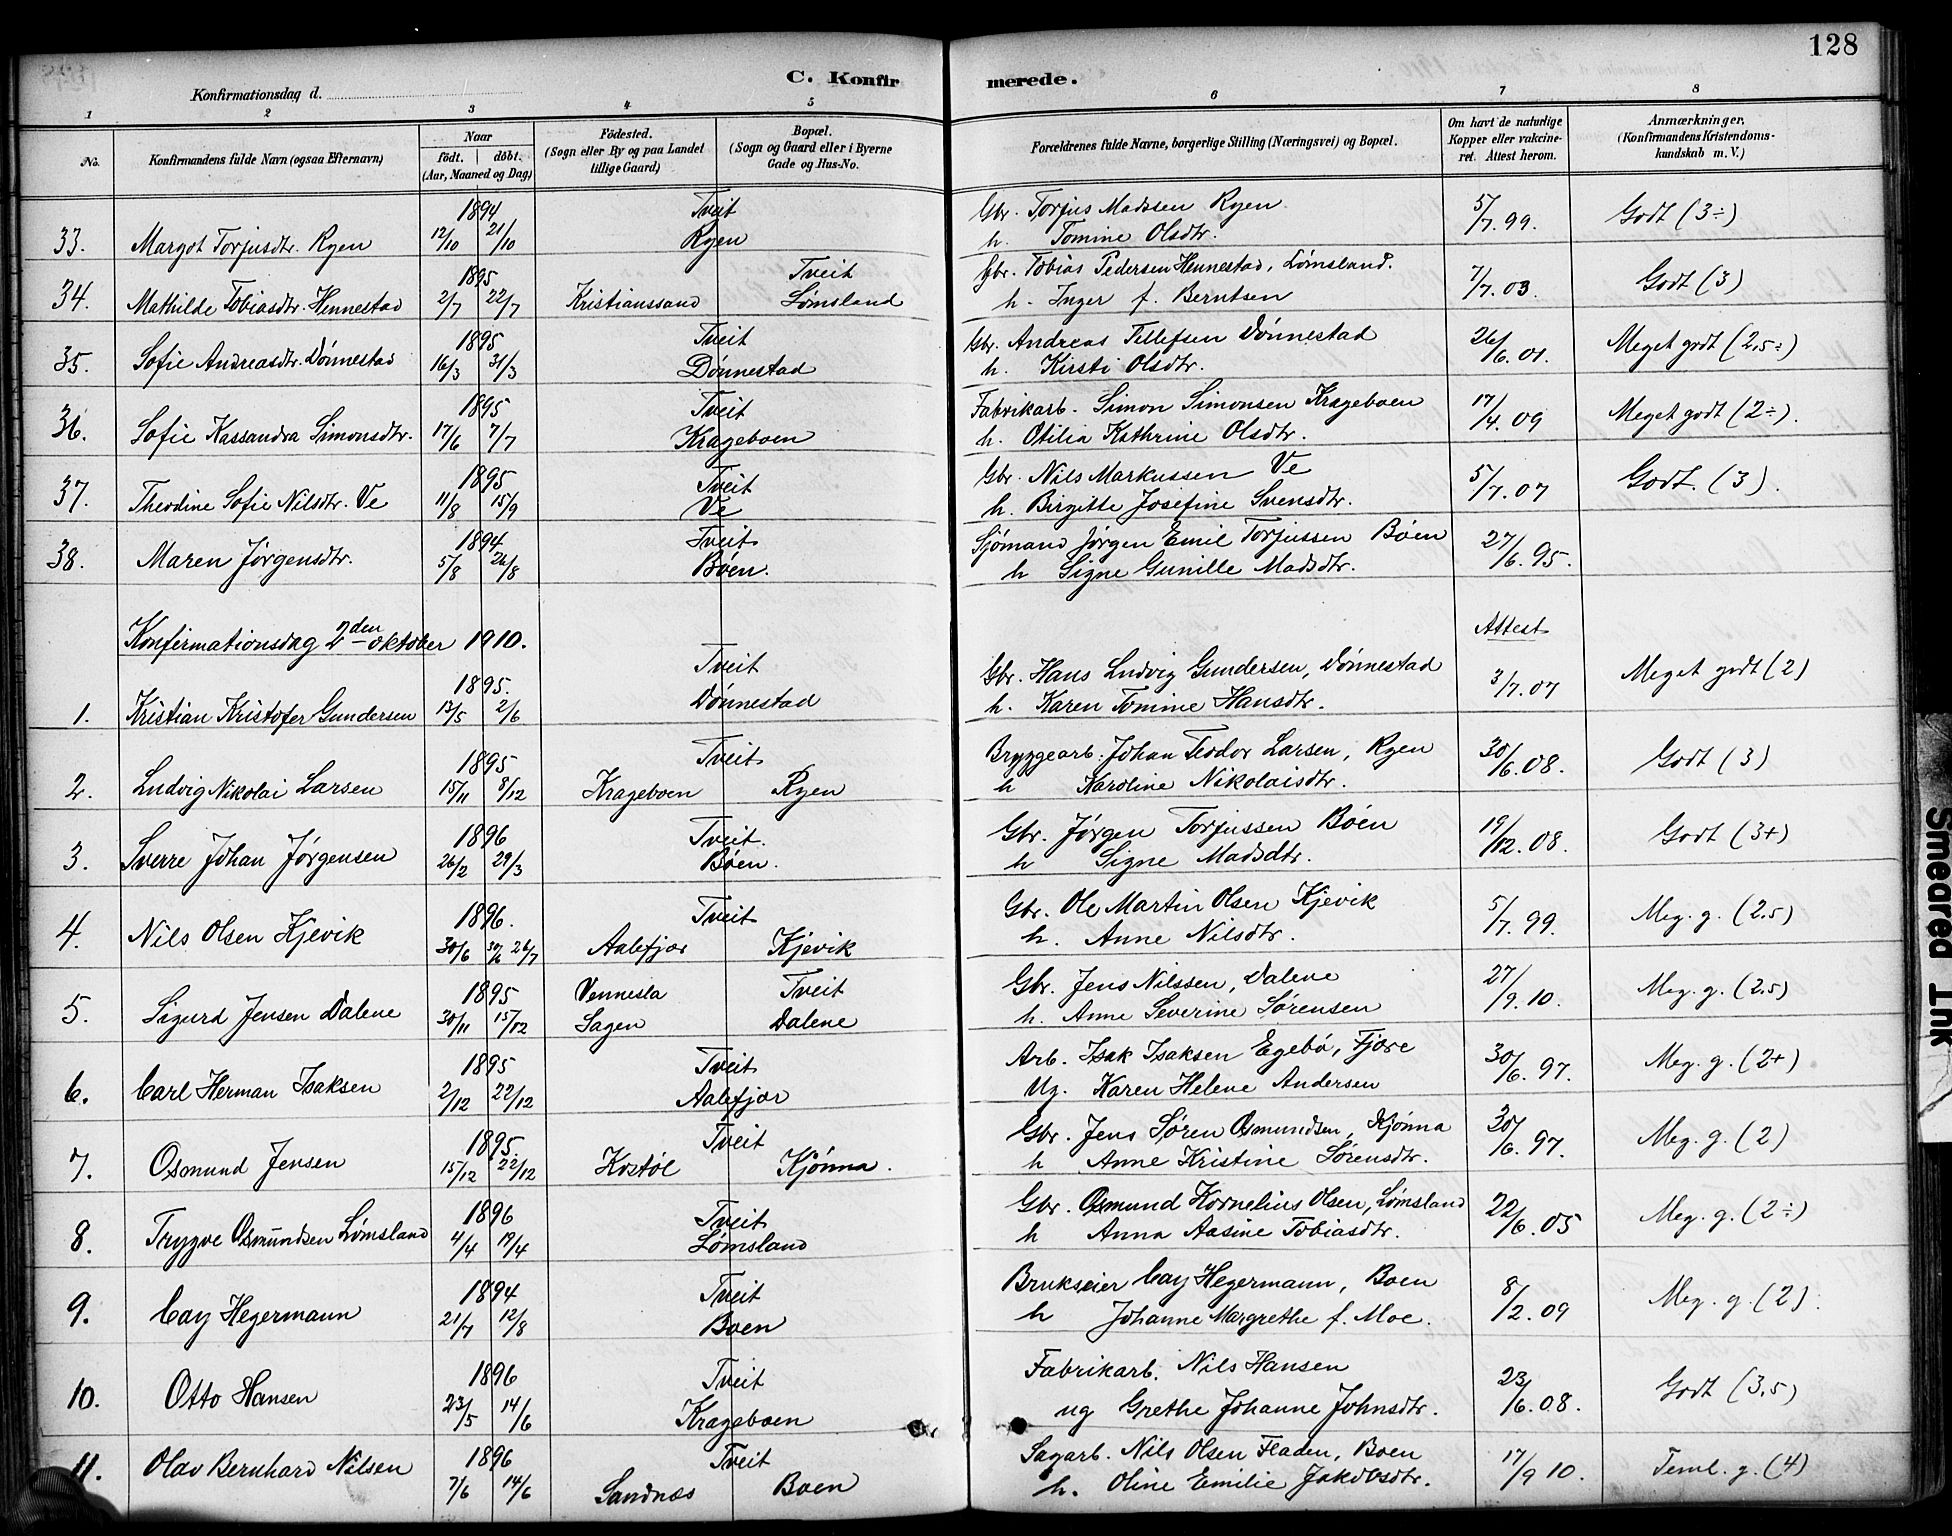 128
C. Konfirmerede.
Konfirmationsdag d.
1 2 3 4 5 6 7 8
No. Konfirmandens fulde Navn (ogsaa Efternavn) Naar födt. döbt. (Aar, Maaned og Dag) Födested. (Sogn eller By og paa Landet tillige Gaard) Bopæl. (Sogn og Gaard eller i Byerne Gade og Hus-No. Forældrenes fulde Navne, borgerlige Stilling (Næringsvei) og Bopæl. Om havt de naturlige Kopper eller vakcineret. Attest herom. Anmærkninger. (Konfirmandens Kristendomskundskab m. V.)
1894 Tveit Gbr. Torjus Madssen Ryen 5/7.99. Godt (3÷)
33. Margot Torjusdtr. Ryen 12/10 21/10 Ryen h. Tomine Olsdtr.
1895 Tveit Gbr. Tobias Pedersen Hennestad, Lømsland. 7/7.03. Godt (3)
34. Mathilde Tobiasdtr. Hennestad 2/7 22/7 Kristianssand Lømsland h. Inger f. Berntsen
1895 Tveit Gbr. Andreas Tellefsen Dönnestad 26/6.01. Meget godt (2,5÷)
35. Sofie Andreasdtr. Dönnestad 16/3 31/3 Dönnestad h. Kirsti Olsdtr.
1895 Tveit Fabrikarb. Simon Simonsen Krageboen 17/4.09 Meget godt (2÷).
36. Sofie Kassandra Simonsdtr. 17/6 7/7 Krageboen h. Otilia Kathrine Olsdtr.
1895 Tveit Gbr. Nils Markussen Ve 5/7.07 Godt. (3).
37. Theodine Sofie Nilsdtr. Ve 11/8 15/9 Ve h. Birgitte Josefine Svensdtr.
1894 Tveit Sjömand Jörgen Emil Torjussen Böen 27/6.95.
38. Maren Jörgensdtr. 5/8 26/8 Böen. h Signe Gunille Madsdtr.
Konfirmationsdag 2den oktober 1910. Attest
1895. Tveit Gbr. Hans Ludvig Gundersen, Dönnestad 3/7.07 Meget godt (2)
1. Kristian Kristofer Gundersen 13/5 2/6 Dönnestad h. Karen Tomine Hansdtr.
1895 Tveit Bryggearb. Johan Teodor Larsen, Ryen 30/6.08. Godt (3)
2. Ludvig Nikolai Larsen 15/11 8/12 Krageboen Ryen h Karoline Nikolaisdtr.
1896 Tveit. Gbr. Jörgen Torjussen Böen 19/12.08. Godt (3+)
3. Sverre Johan Jörgensen 26/2 29/3 Böen. h Signe Madsdtr.
1896. Tveit Gbr. Ole Martin Olsen Kjevik 5/7.99. Meg. g. (2,5)
4. Nils Olsen Kjevik 30/6 30/6 26/7 Aalefjær Kjevik h. Anne Nilsdtr.
1895 Vennesla Tveit Gbr. Jens Nilssen, Dalene 27/9.10. Meg. g. (2,5)
5. Sigurd Jensen Dalene 30/11 15/12 Sagen Dalene h. Anne Severine Sörensen
1895 Tveit Arb. Isak Isaksen Egebö, Fjære 30/6.97. Meg. g. (2+)
6. Carl Herman Isaksen 2/12 22/12 Aalefjær Ug. Karen Helene Andersen
1895. Tveit Gbr. Jens Sören Osmundsen, Kjönna 30/6.97. Meg. g. (2)
7. Osmund Jensen 15/12 22/12 Kostöl Kjönna. h Anne Kristine Sörensdtr.
1896 Tveit Gbr. Osmund Kornelius Olsen, Lømsland 22/6.05 Meg. g. (2÷)
8. Trygve Osmundsen Lømsland 4/4 19/4 Lømsland h Anna Aasine Tobiasdtr.
1894 Tveit Brukseier Cay Hegermann, Boen 8/2.09 Meg. g. (2).
9. Cay Hegermann 21/7 12/8 Boen h Johanne Margrethe f. Moe.
1896 Tveit Fabrikarb. Nils Hansen 23/6.08. Godt (3,5)
10. Otto Hansen 23/5 14/6 Krageboen ug Grethe Johanne Johnsdtr.
1896 Tveit Sagarb. Nils Olsen Fladen, Boen 17/9 10. Teml. g. (4)
11. Olav Bernhard Nilsen 7/6 14/6 Sandnæs Boen h. Oline Emilie Jakobsdtr.
Smeared Ink